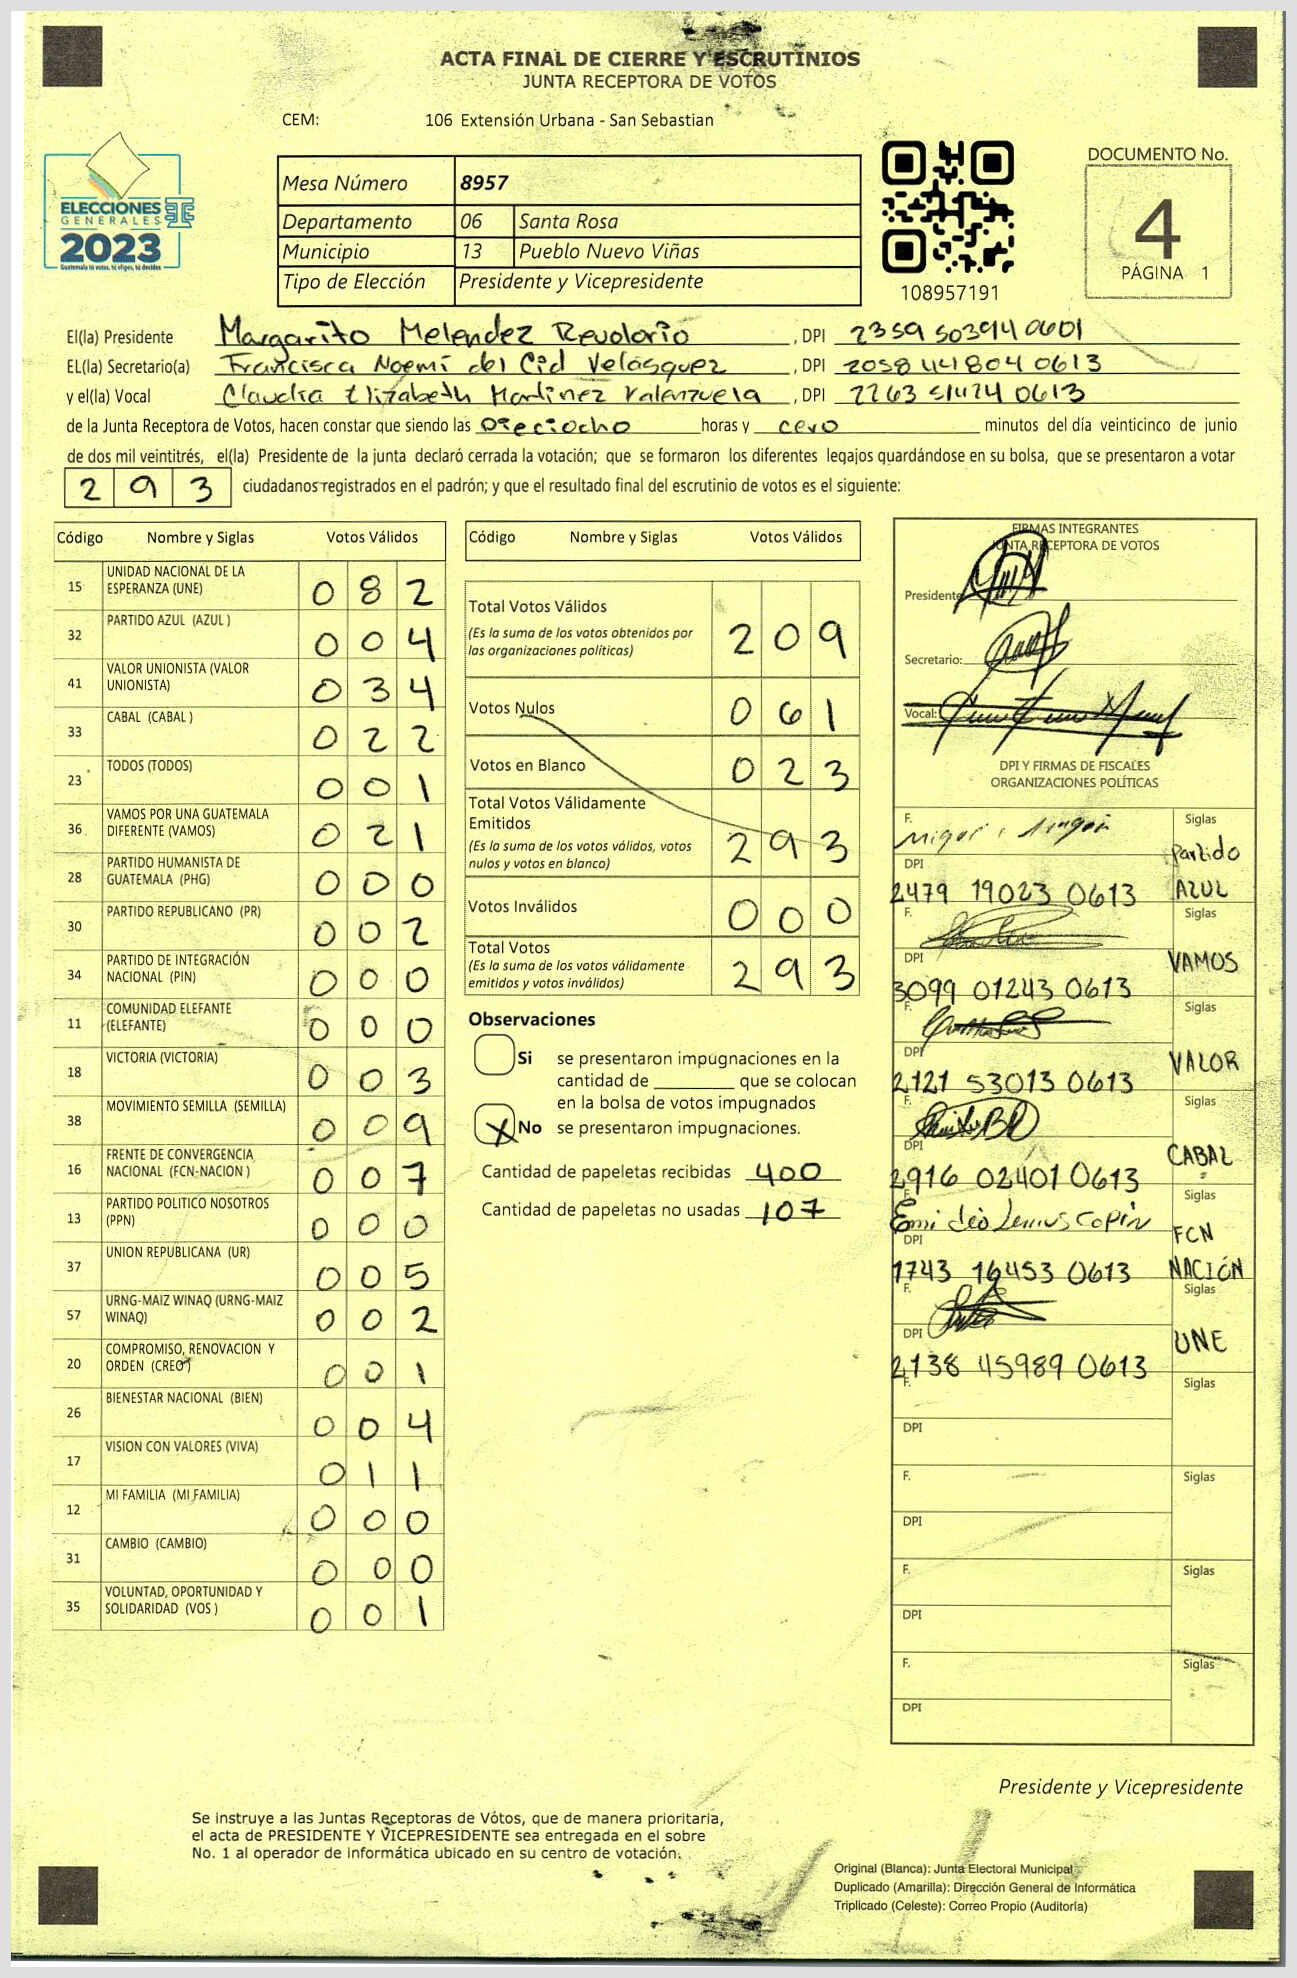 ACTA FINAL DE CIERRE Y ESCRUTINIOS
JUNTA RECEPTORA DE VOTOS
CEM: 106 Extensión Urbana - San Sebastian
ELECCIONES
GENERALES
2023
Guatemala tú votas, tú eliges, tú decides
Mesa Número 8957
Departamento 06 Santa Rosa
Municipio 13 Pueblo Nuevo Viñas
Tipo de Elección Presidente y Vicepresidente
108957191
DOCUMENTO No.
4
PÁGINA 1
El(la) Presidente Margarito Melendez Revolorio, DPI 2359 50394 0601
EL(la) Secretario(a) Francisca Noemí del Cid Velásquez, DPI 2058 44804 0613
y el(la) Vocal Claudia Elizabeth Martinez Valenzuela, DPI 0613
de la Junta Receptora de Votos, hacen constar que siendo las Dieciocho horas y cero minutos del día veinticinco de junio
de dos mil veintitrés, el(la) Presidente de la junta declaró cerrada la votación; que se formaron los diferentes legajos quardándose en su bolsa, que se presentaron a votar
293 ciudadanos registrados en el padrón; y que el resultado final del escrutinio de votos es el siguiente:
Código Nombre y Siglas Votos Válidos
15 UNIDAD NACIONAL DE LA ESPERANZA (UNE) 082
32 PARTIDO AZUL (AZUL ) 004
41 VALOR UNIONISTA (VALOR UNIONISTA) 034
33 CABAL (CABAL ) 022
23 TODOS (TODOS) 001
36 VAMOS POR UNA GUATEMALA DIFERENTE (VAMOS) 021
28 PARTIDO HUMANISTA DE GUATEMALA (PHG) 000
30 PARTIDO REPUBLICANO (PR) 002
34 PARTIDO DE INTEGRACIÓN NACIONAL (PIN) 000
11 COMUNIDAD ELEFANTE (ELEFANTE) 000
18 VICTORIA (VICTORIA) 003
38 MOVIMIENTO SEMILLA (SEMILLA) 009
16 FRENTE DE CONVERGENCIA NACIONAL (FCN-NACION ) 007
13 PARTIDO POLITICO NOSOTROS (PPN) 000
37 UNION REPUBLICANA (UR) 005
57 URNG-MAIZ WINAQ (URNG-MAIZ WINAQ) 002
20 COMPROMISO, RENOVACION Y ORDEN (CREO) 001
26 BIENESTAR NACIONAL (BIEN) 004
17 VISION CON VALORES (VIVA) 011
12 MI FAMILIA (MI FAMILIA) 000
31 CAMBIO (CAMBIO) 000
35 VOLUNTAD, OPORTUNIDAD Y SOLIDARIDAD (VOS ) 001
Código Nombre y Siglas Votos Válidos
Total Votos Válidos 209
(Es la suma de los votos obtenidos por
las organizaciones políticas)
Votos Nulos 061
Votos en Blanco 023
Total Votos Válidamente
Emitidos 293
(Es la suma de los votos válidos, votos
nulos y votos en blanco)
Votos Inválidos 000
Total Votos 293
(Es la suma de los votos válidamente
emitidos y votos inválidos)
Observaciones
Si se presentaron impugnaciones en la
cantidad de ________ que se colocan
en la bolsa de votos impugnados
X No se presentaron impugnaciones.
Cantidad de papeletas recibidas 400
Cantidad de papeletas no usadas 107
FIRMAS INTEGRANTES
JUNTA RECEPTORA DE VOTOS
Presidente
Secretario:
Vocal:
DPI Y FIRMAS DE FISCALES
ORGANIZACIONES POLÍTICAS
F. Siglas
DPI Partido
2479 19023 0613 AZUL
F. Siglas
DPI VAMOS
3099 01243 0613
F. Siglas
DPI VALOR
2121 53013 0613
F. Siglas
DPI CABAL
2916 02401 0613
F. Siglas
DPI FCN
1743 16453 0613 NACIÓN
F. Siglas
DPI UNE
2138 45989 0613
F. Siglas
DPI
F. Siglas
DPI
F. Siglas
DPI
F. Siglas
DPI
Presidente y Vicepresidente
Se instruye a las Juntas Receptoras de Votos, que de manera prioritaria,
el acta de PRESIDENTE Y VICEPRESIDENTE sea entregada en el sobre
No. 1 al operador de informática ubicado en su centro de votación.
Original (Blanca): Junta Electoral Municipal
Duplicado (Amarilla): Dirección General de Informática
Triplicado (Celeste): Correo Propio (Auditoría)